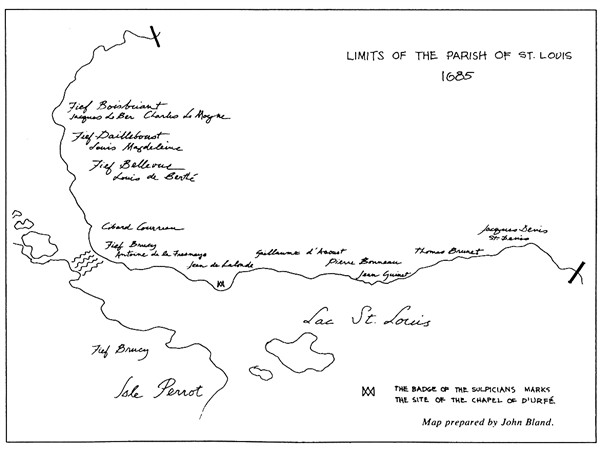 LIMITS OF THE PARISH OF ST. LOUIS
1685
Fief Boisbriant
Jacques Le Ber Charles Le Moyne
Fief Dailleboust
Louis Magdeleine
Fief Bellevue
Louis de Berthé
Cibard Courreau
Fief Brucy
Antoine de la Fresnaye
Jean de Lalonde
Guillaume d'Aoust
Pierre Bonneau
Jean Guinet
Thomas Brunet
Jacques Denis
St. Denis
Lac St. Louis
Fief Brucy
Isle Perrot
THE BADGE OF THE SULPICIANS MARKS
THE SITE OF THE CHAPEL OF D'URFÉ.
Map prepared by John Bland.